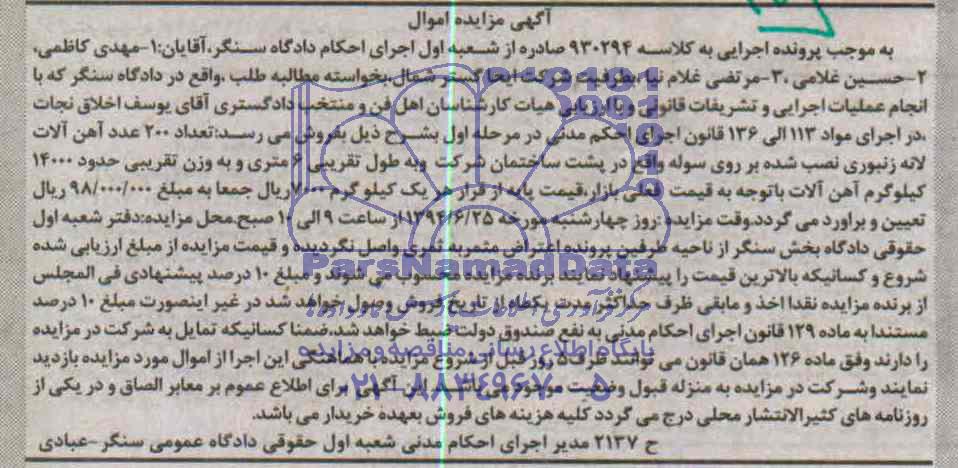 آگهی مزایده اموال
به موجب پرونده اجرایی به کلاسه ۹۳۰۲۹۴ صادره از شعبه اول اجرای احکام دادگاه سنگر،آقایان:۱-مهدی کاظمی،
۲-حسین غلامی ،۳-مرتضی غلام نیا،بطرفیت شرکت ایحا گستر شمال،بخواسته مطالبه طلب ،واقع در دادگاه سنگر که با
انجام عملیات اجرایی و تشریفات قانونی و با ارزیابی هیات کارشناسان اهل فن و منتخب دادگستری آقای یوسف اخلاق نجات
،در اجرای مواد ۱۱۳ الی ۱۳۶ قانون اجرای احکم مدنی در مرحله اول بشرح ذیل بفروش می رسد:تعداد ۲۰۰ عدد آهن آلات
لانه زنبوری نصب شده بر روی سوله واقع در پشت ساختمان شرکت وبه طول تقریبی ۶ متری و به وزن تقریبی حدود ۱۴۰۰۰
کیلوگرم آهن آلات باتوجه به قیمت فعلی بازار،قیمت پایه از قرار هر یک کیلو گرم ۷۰۰۰ریال جمعا به مبلغ ۹۸/۰۰۰/۰۰۰ ریال
تعیین و براورد می گردد.وقت مزایده :روز چهارشنبه مورخه ۱۳۹۴/۶/۲۵ از ساعت ۹ الی ۱۰ صبح.محل مزایده:دفتر شعبه اول
حقوقی دادگاه بخش سنگر از ناحیه طرفین پرونده اعتراض مثمربه ثمری واصل نگردیده و قیمت مزایده از مبلغ ارزیابی شده
شروع و کسانیکه بالاترین قیمت را پیشنهاد نمایند برنده مزایده محسوب می شوند و مبلغ ۱۰ درصد پیشنهادی فی المجلس
از برنده مزایده نقدا اخذ و مابقی ظرف حداکثر مدت یکماه از تاریخ فروش وصول خواهد شد در غیر اینصورت مبلغ ۱۰ درصد
مستندا به ماده ۱۲۹ قانون اجرای احکام مدنی به نفع صندوق دولت ضبط خواهد شد،ضمنا کسانیکه تمایل به شرکت در مزایده
را دارند وفق ماده ۱۲۶ همان قانون می توانند ظرف ۵ روز قبل از شروع مزایده، با هماهنگی این اجرا از اموال مورد مزایده بازدید
نمایند وشرکت در مزایده به منزله قبول وضعیت موجود می باشد. این آگهی برای اطلاع عموم بر معابر الصاق و در یکی از
روزنامه های کثیرالانتشار محلی درج می گردد کلیه هزینه های فروش بعهده خریدار می باشد.
ح ۲۱۳۷ مدیر اجرای احکام مدنی شعبه اول حقوقی دادگاه عمومی سنگر-عبادی
ParsNamadData
پایگاه اطلاع رسانی مناقصه و مزایده
۰۲۱-۸۸۳۴۹۶۷۰-۵